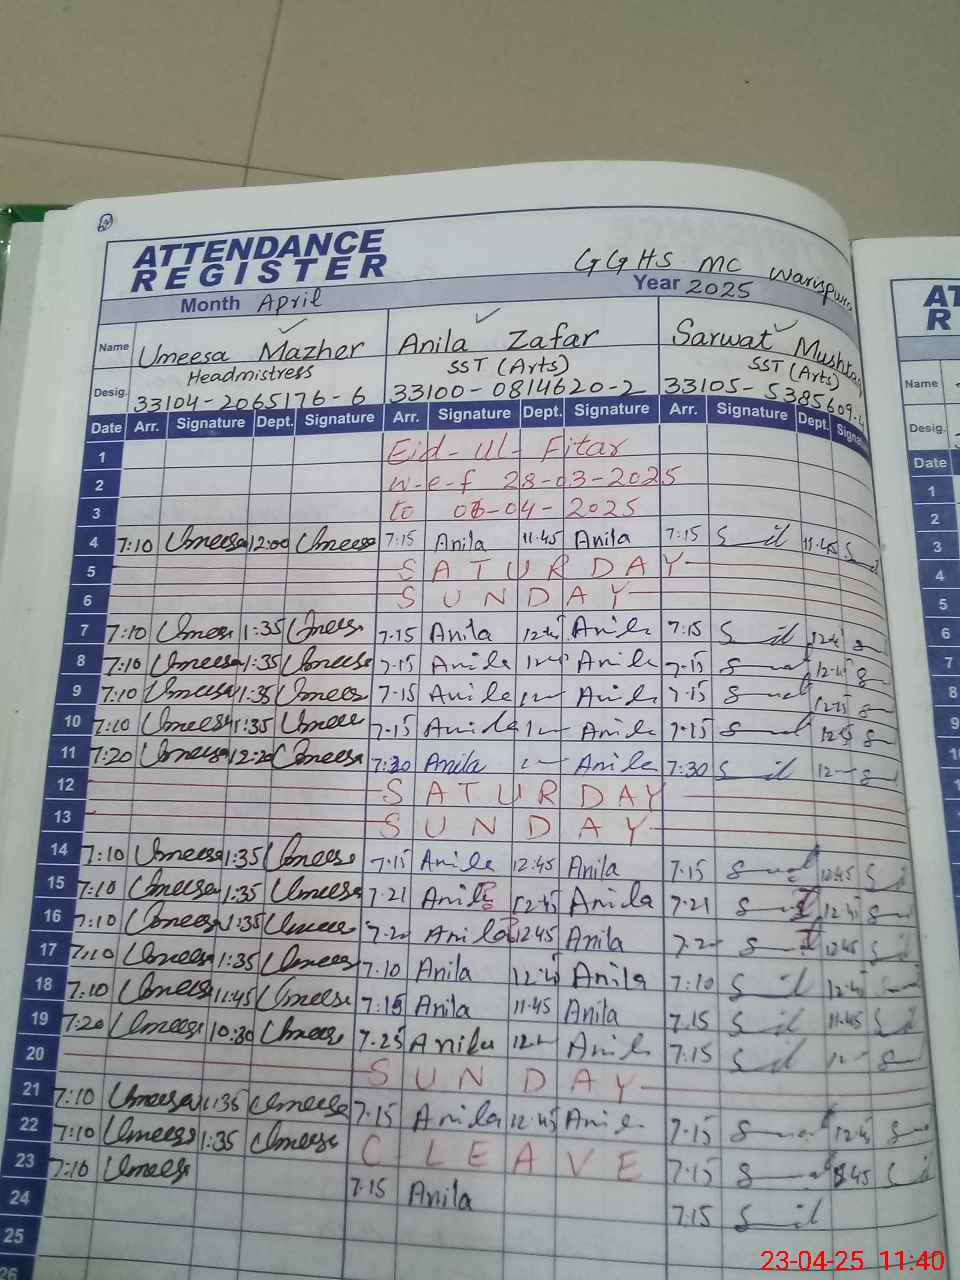 ATTENDANCE
REGISTER
GGHS MC Warispura
Month April Year 2025
Name Umeesa Mazher Anila Zafar Sarwat Mushtaq
Desig. Headmistress SST (Arts) SST (Arts)
33104-2065176-6 33100-0814620-2 33105-5385609-
Date Arr. Signature Dept. Signature Arr. Signature Dept. Signature Arr. Signature Dept. Signature
1 Eid-ul-Fitar
2 w-e-f 28-03-2025
3 to 06-04-2025
4 7:10 Umeesa 12:00 Umeesa 7:15 Anila 11:45 Anila 7:15 11:45
5 SATURDAY
6 SUNDAY
7 7:10 Umeesa 1:35 Umeesa 7:15 Anila 12:45 Anila 7:15 12:45
8 7:10 Umeesa 1:35 Umeesa 7:15 Anila Anila 7:15 12:45
9 7:10 Umeesa 1:35 Umeesa 7:15 Anila Anila 7:15
10 7:10 Umeesa 1:35 Umeesa 7:15 Anila Anila 7:15
11 7:20 Umeesa 12:20 Umeesa 7:30 Anila Anila 7:30
12 SATURDAY
13 SUNDAY
14 7:10 Umeesa 1:35 Umeesa 7:15 Anila 12:45 Anila 7:15 12:45
15 7:10 Umeesa 1:35 Umeesa 7:21 Anila 12:45 Anila 7:21 12:45
16 7:10 Umeesa 1:35 Umeesa Anila 12:45 Anila 12:45
17 7:10 Umeesa 1:35 Umeesa 7:10 Anila 12:45 Anila 7:10 12:45
18 7:10 Umeesa 11:45 Umeesa 7:15 Anila 11:45 Anila 7:15 11:45
19 7:20 Umeesa 10:30 Umeesa 7:25 Anila Anila 7:15
20 SUNDAY
21 7:10 Umeesa 1:35 Umeesa 7:15 Anila 12:45 Anila 7:15 12:45
22 7:10 Umeesa 1:35 Umeesa C LEAVE 7:15
23 7:10 Umeesa 7:15 Anila 7:15
24
25
26
AT
R
Name
Desig.
Date
1
2
3
4
5
6
7
8
9
23-04-25 11:40